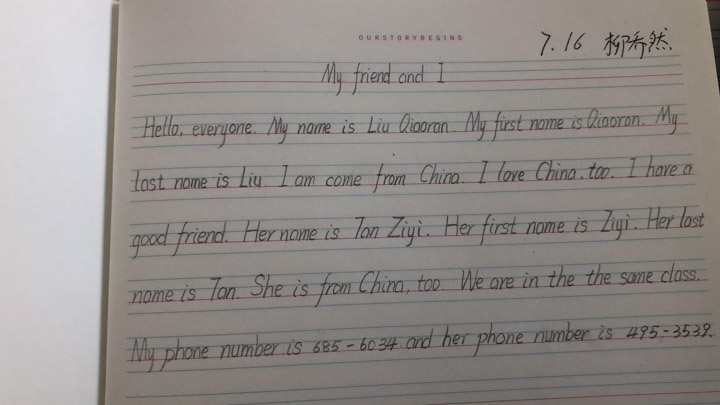 OURSTORYBEGINS
7.16 柳乔然
My friend and I
Hello, everyone. My name is Liu Qiaoran. My first name is Qiaoran. My
last name is Liu. I am come from China. I love China. too. I have a
good friend. Her name is Tan Ziyi. Her first name is Ziyi. Her last
name is Tan. She is from China, too. We are in the the same class.
My phone number is 685-6034 and her phone number is 495-3539.